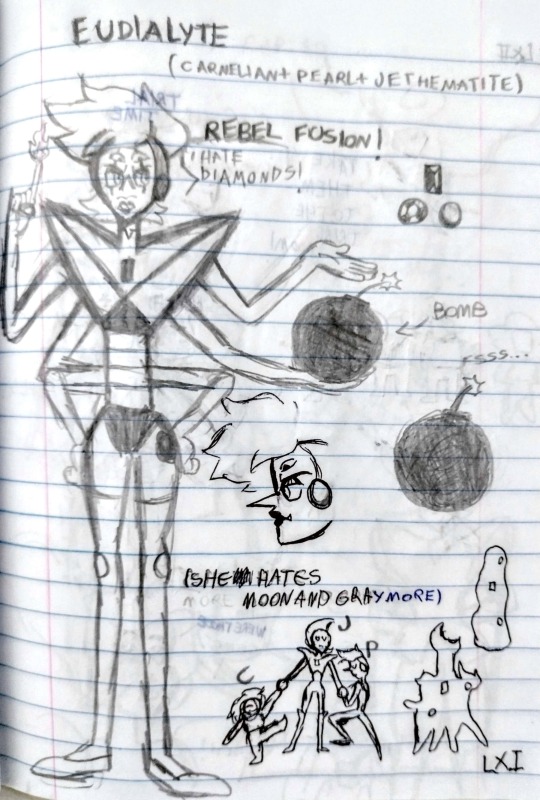 EUDIALYTE
(CARNELIAN + PEARL + JETHEMATITE)
REBEL FUSION!
I HATE
DIAMONDS!
BOMB
FSSS...
(SHE HATES
MOON AND GRAY MORE)
J
P
C
LXI